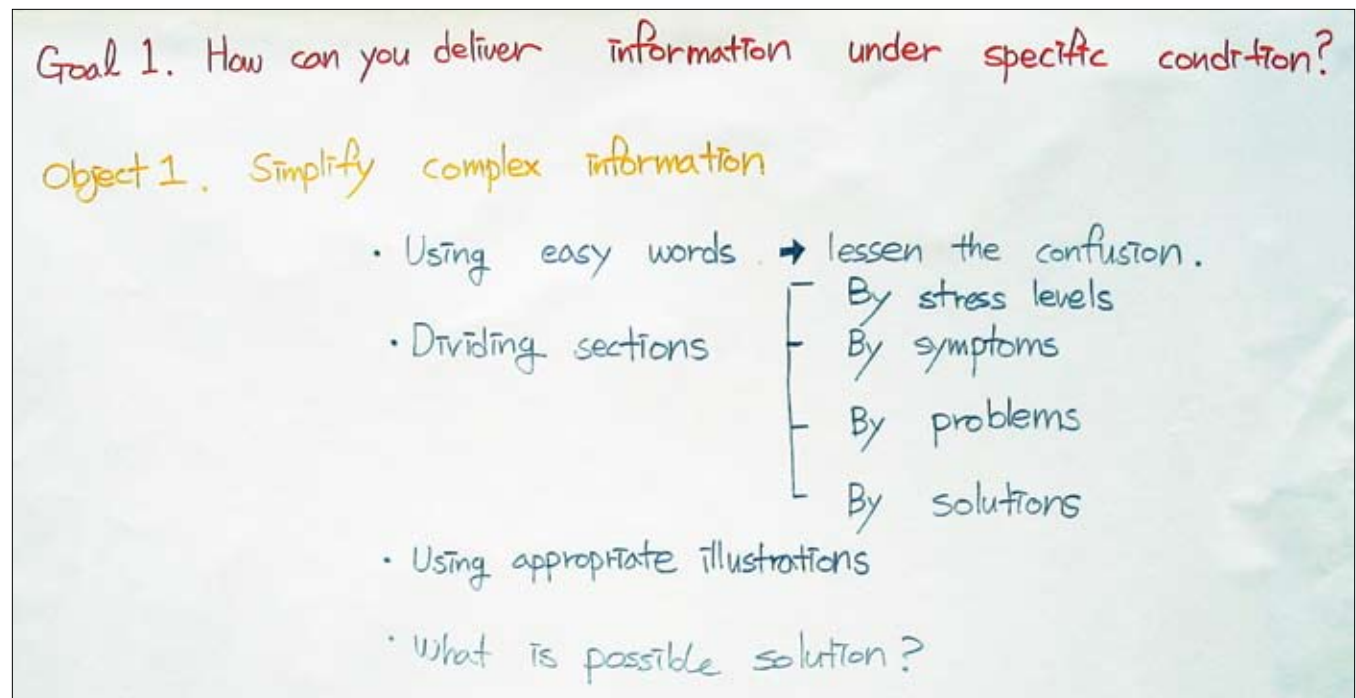 Goal 1. How can you deliver information under specific condition?
Object 1. Simplify complex information
· Using easy words → lessen the confusion.
By stress levels
· Dividing sections By symptoms
By problems
By solutions
· Using appropriate illustrations
· What is possible solution?